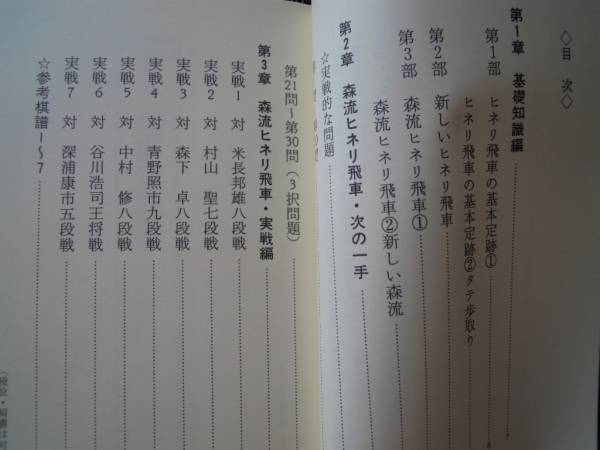 ◇目 次◇
第1章 基礎知識編
第1部 ヒネリ飛車の基本定跡①
ヒネリ飛車の基本定跡②タテ歩取り
第2部 新しいヒネリ飛車
第3部 森流ヒネリ飛車①
森流ヒネリ飛車②新しい森流
第2章 森流ヒネリ飛車・次の一手
☆実戦的な問題
第21問～第30問(3択問題)
第3章 森流ヒネリ飛車・実戦編
実戦1 対 米長邦雄八段戦
実戦2 対 村山 聖七段戦
実戦3 対 森下 卓八段戦
実戦4 対 青野照市九段戦
実戦5 対 中村 修八段戦
実戦6 対 谷川浩司王将戦
実戦7 対 深浦康市五段戦
☆参考棋譜1～7
(段位・肩書は対